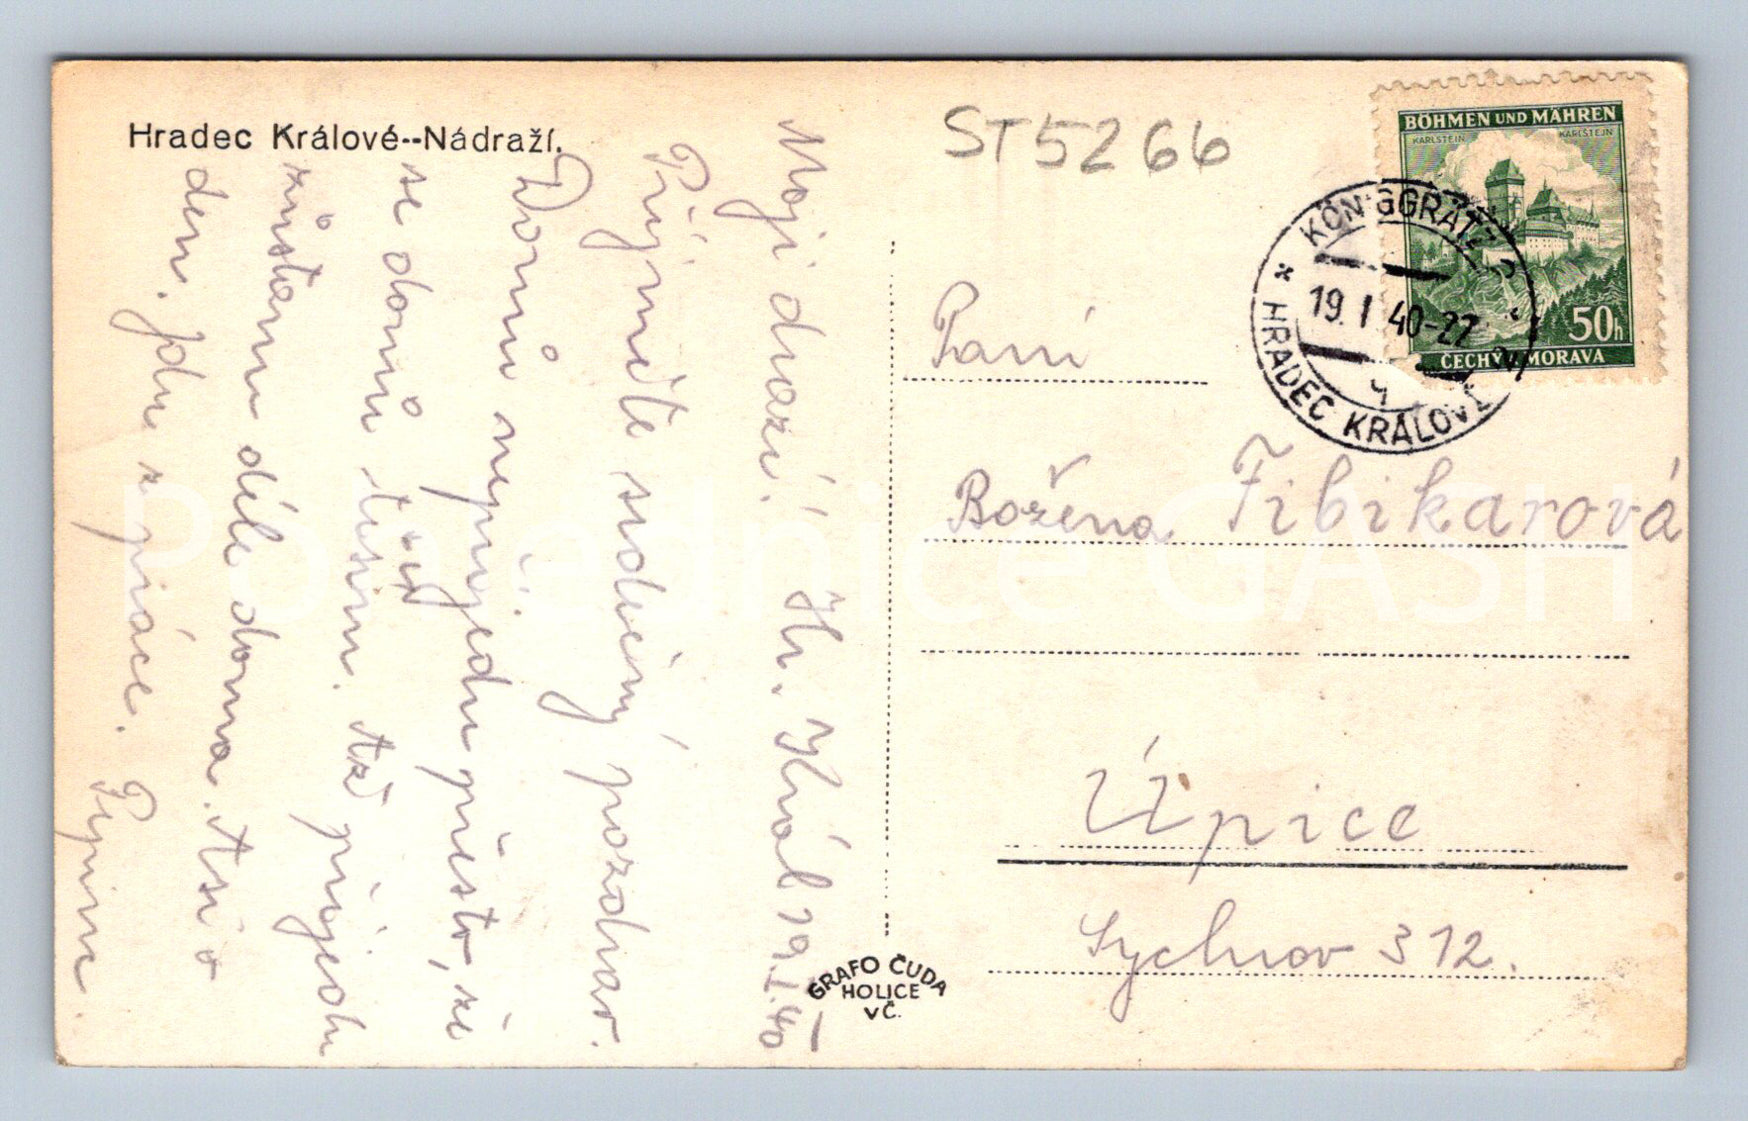 Hradec Králové--Nádraží.
Moji drazí! Hr. Král 19.I.40
Přijměte srdečný pozdrav.
Domů nepřijedu přesto, že
se domů těším. Až přijedu
zůstanu déle doma. Asi o
den. Jdu z práce. Pepina
ST5266
BÖHMEN UND MÄHREN
KARLSTEIN
KARLŠTEJN
50h
ČECHY A MORAVA
KÖNIGGRÄTZ 2
19.I 40-22
HRADEC KRÁLOVÉ 2
Paní
Božena Fibikarová
Úpice
Sychrov 312.
GRAFO ČUDA
HOLICE
VČ.
Pohlednice GASH